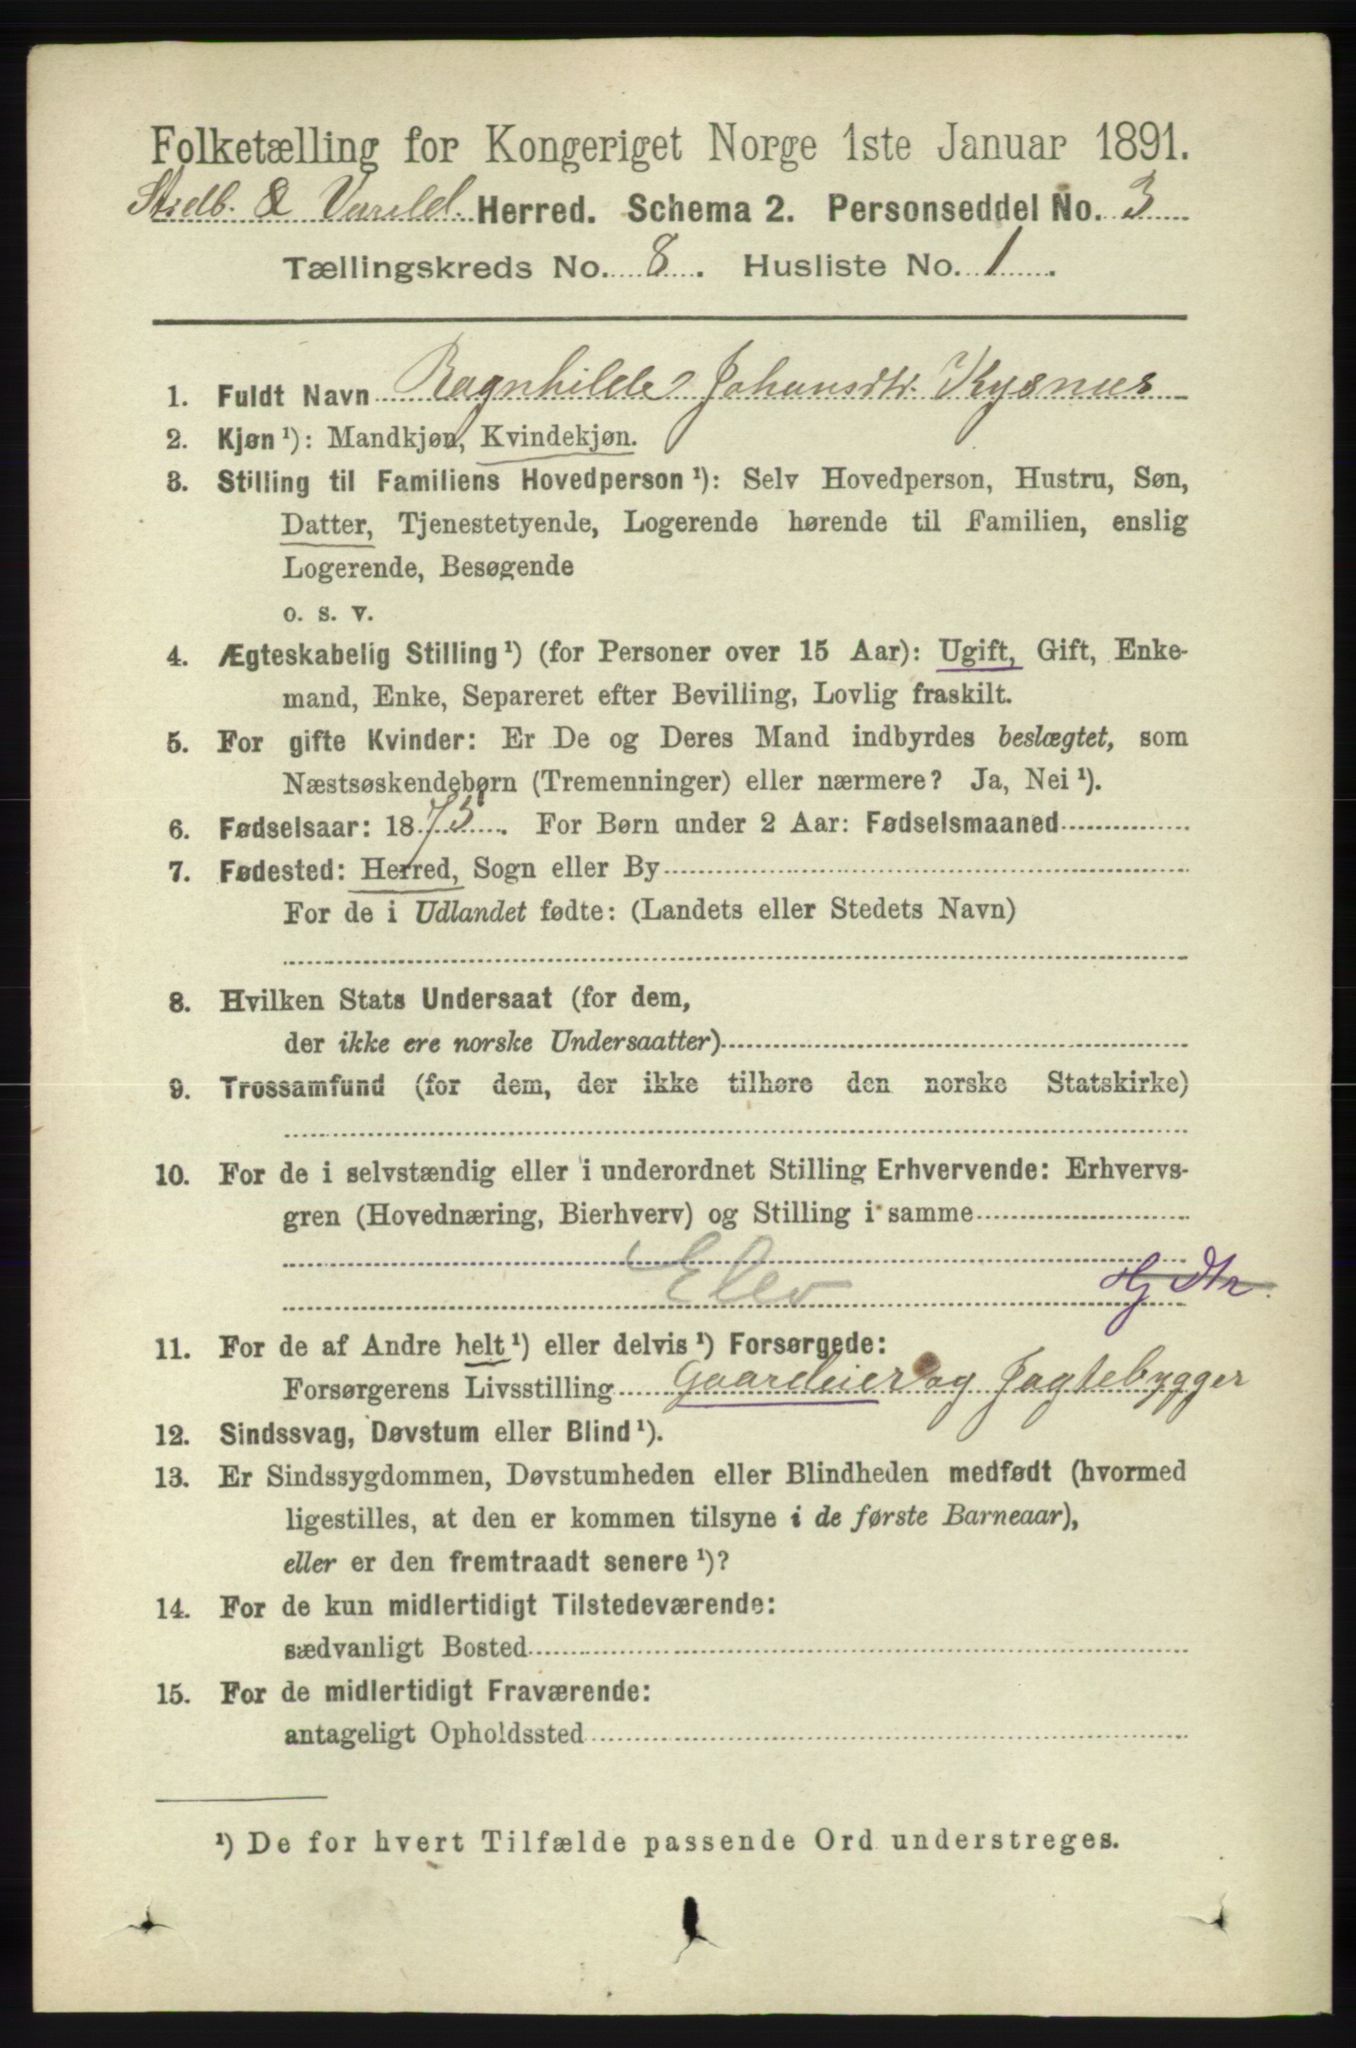 Folketælling for Kongeriget Norge 1ste Januar 1891.
Strdb. & Vareld. Herred. Schema 2. Personseddel No. 3
Tællingskreds No. 8. Husliste No. 1.
1. Fuldt Navn Ragnhilde Johansdtr. Kysnæs
2. Kjøn ¹): Mandkjøn, Kvindekjøn.
3. Stilling til Familiens Hovedperson ¹): Selv Hovedperson, Hustru, Søn,
Datter, Tjenestetyende, Logerende hørende til Familien, enslig
Logerende, Besøgende
o. s. v.
4. Ægteskabelig Stilling ¹) (for Personer over 15 Aar): Ugift, Gift, Enke-
mand, Enke, Separeret efter Bevilling, Lovlig fraskilt.
5. For gifte Kvinder: Er De og Deres Mand indbyrdes beslægtet, som
Næstsøskendebørn (Tremenninger) eller nærmere? Ja, Nei ¹).
6. Fødselsaar: 1875. For Børn under 2 Aar: Fødselsmaaned
7. Fødested: Herred, Sogn eller By
For de i Udlandet fødte: (Landets eller Stedets Navn)
8. Hvilken Stats Undersaat (for dem,
der ikke ere norske Undersaatter)
9. Trossamfund (for dem, der ikke tilhøre den norske Statskirke)
10. For de i selvstændig eller i underordnet Stilling Erhvervende: Erhvervs-
gren (Hovednæring, Bierhverv) og Stilling i samme
Elev Hj Dtr.
11. For de af Andre helt ¹) eller delvis ¹) Forsørgede:
Forsørgerens Livsstilling Gaardeier og Jagtebygger
12. Sindssvag, Døvstum eller Blind ¹).
13. Er Sindssygdommen, Døvstumheden eller Blindheden medfødt (hvormed
ligestilles, at den er kommen tilsyne i de første Barneaar),
eller er den fremtraadt senere ¹)?
14. For de kun midlertidigt Tilstedeværende:
sædvanligt Bosted
15. For de midlertidigt Fraværende:
antageligt Opholdssted
¹) De for hvert Tilfælde passende Ord understreges.